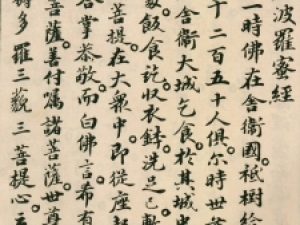 波羅蜜經
一時佛在舍衛國祇樹給
千二百五十人俱尒時世
舍衛大城乞食於其城中
飯食訖收衣鉢洗足已敷
菩提在大衆中即從座起
合掌恭敬而白佛言希有
菩薩善付囑諸菩薩世尊
耨多羅三藐三菩提心